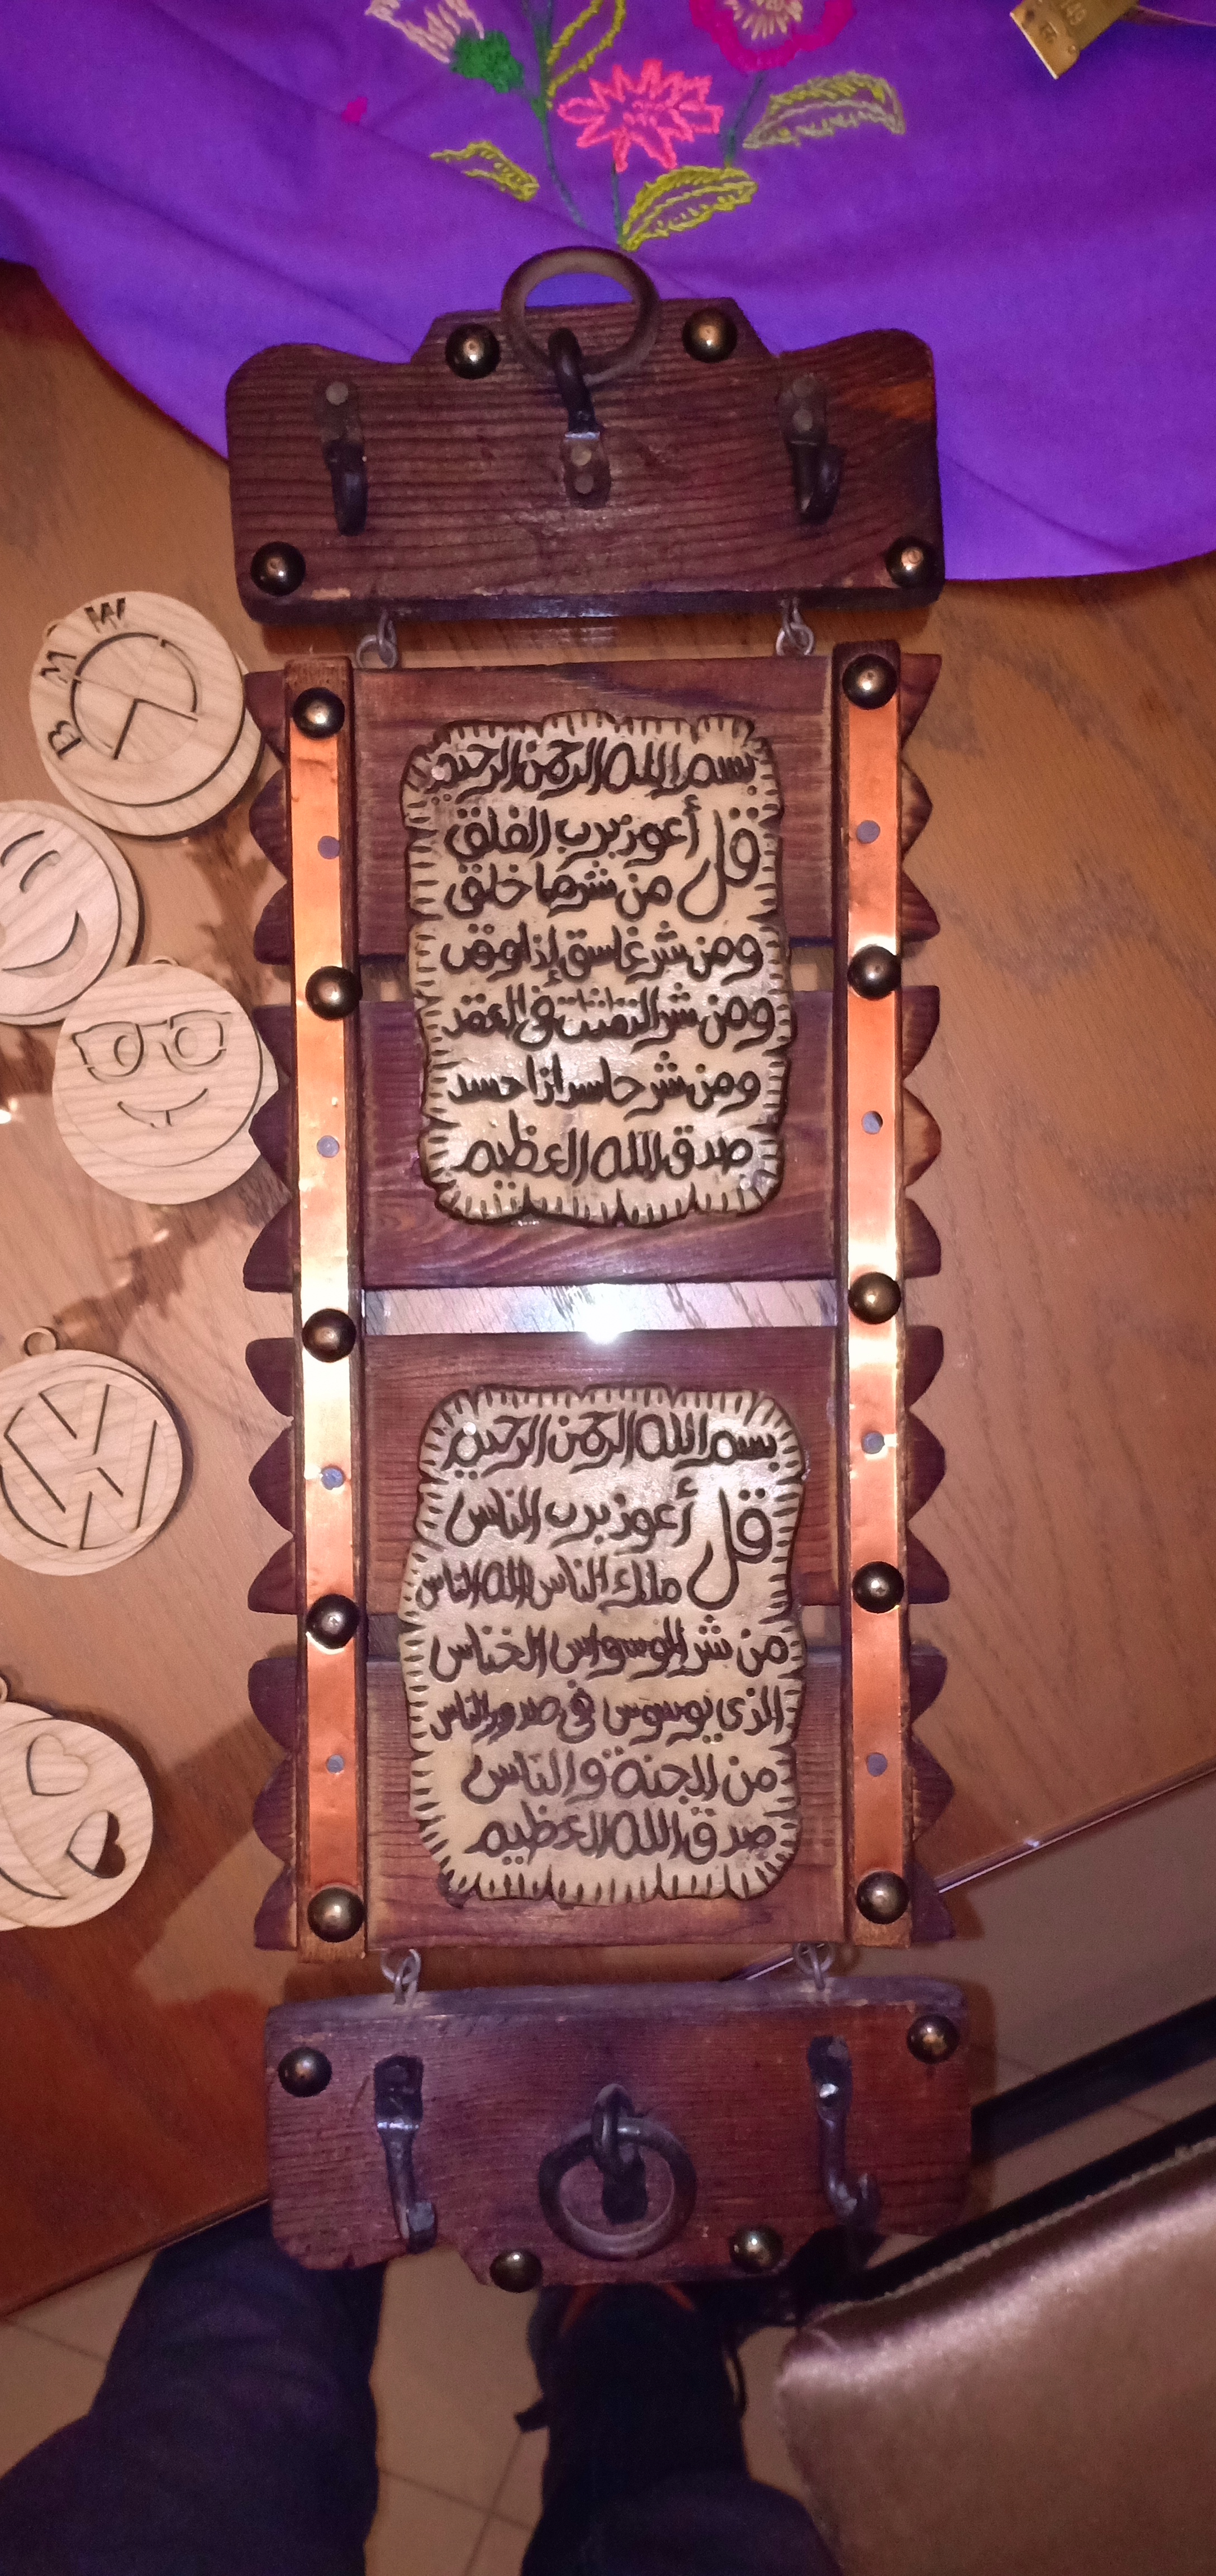 بسم الله الرحمن الرحيم
قل أعوذ برب الفلق
من شر ما خلق
ومن شر غاسق إذا وقب
ومن شر النفثت في العقد
ومن شر حاسد اذا حسد
صدق الله العظيم
بسم الله الرحمن الرحيم
قل أعوذ برب الناس
ملك الناس اله الناس
من شر الوسواس الخناس
الذي يوسوس في صدور الناس
من الجنة والناس
صدق الله العظيم
BMW
149